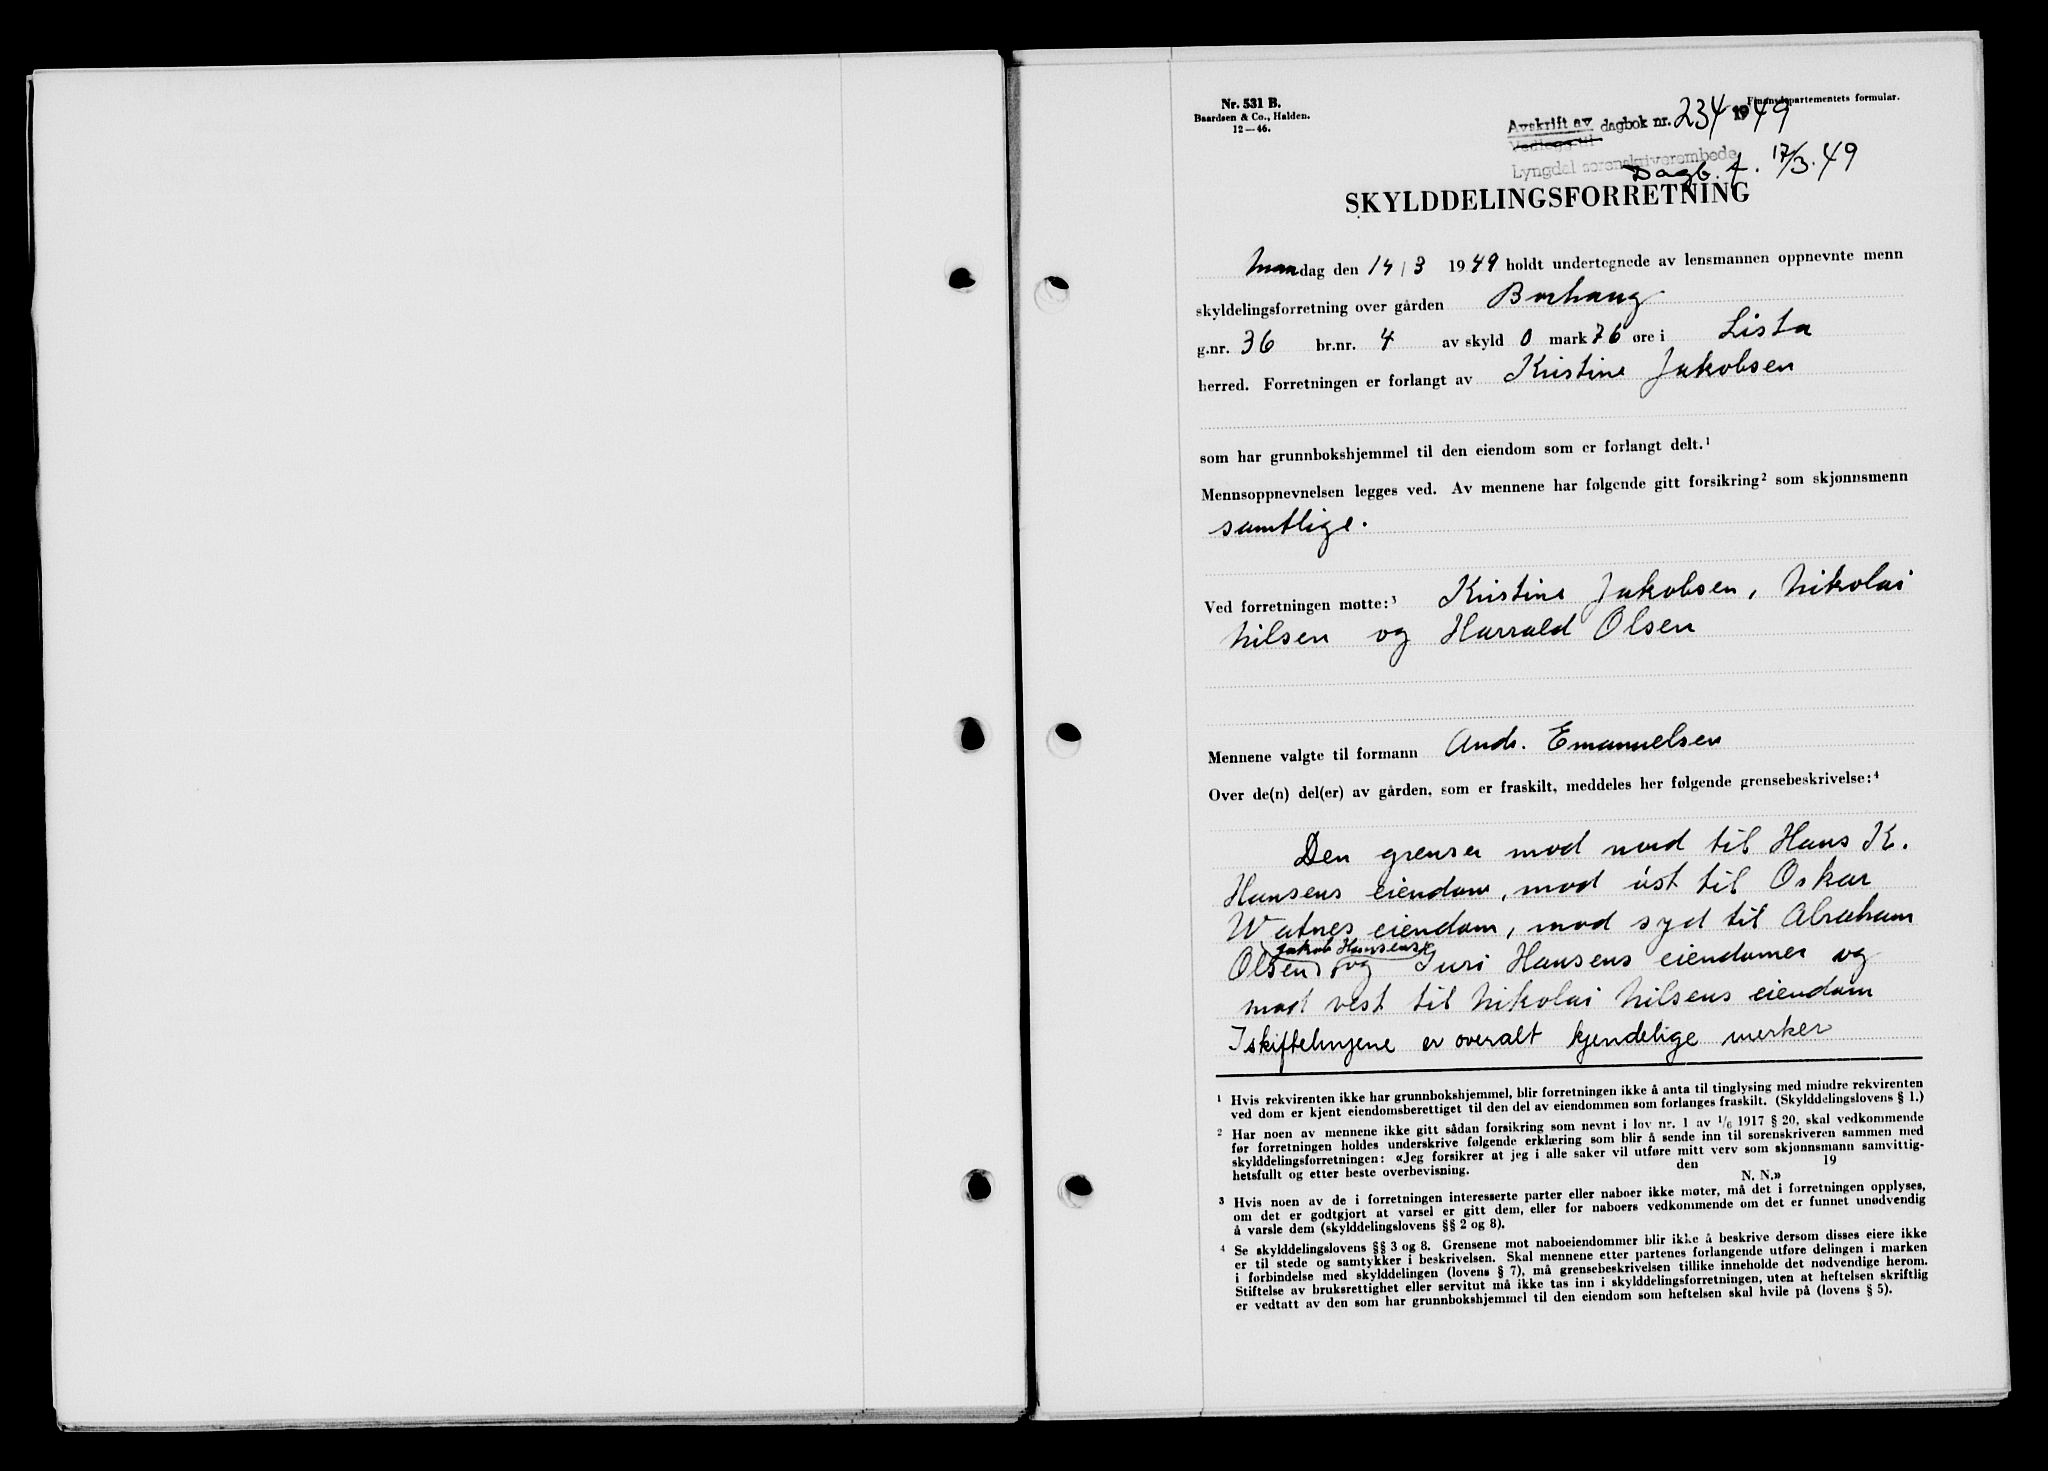 Nr. 531 B.
Baardsen & Co., Halden.
12—46.
Finansdepartementets formular.
Avskrift av dagbok nr. 234 1949
Vedlegg til
Lyngdal sorenskriverembede
Dagb. f. 17/3.49
SKYLDDELINGSFORRETNING
Mandag den 14/3 1949 holdt undertegnede av lensmannen oppnevnte menn
skyldelingsforretning over gården Borhaug
g.nr. 36 br.nr. 4 av skyld 0 mark 76 øre i Lista
herred. Forretningen er forlangt av Kristine Jakobsen
som har grunnbokshjemmel til den eiendom som er forlangt delt.¹
Mennsoppnevnelsen legges ved. Av mennene har følgende gitt forsikring² som skjønnsmenn
samtlige.
Ved forretningen møtte:³ Kristine Jakobsen, Nikolai
Nilsen og Harrald Olsen
Mennene valgte til formann And. Emanuelsen
Over de(n) del(er) av gården, som er fraskilt, meddeles her følgende grensebeskrivelse:⁴
Den grenser mod nord til Hans K.
Hansens eiendom, mod øst til Oskar
Watnes eiendom, mod syd til Abraham
Jakob Hansens
Olsens og Juri Hansens eiendomer og
mod vest til Nikolai Nilsens eiendom
I skiftelinjene er overalt kjendelige merker
¹ Hvis rekvirenten ikke har grunnbokshjemmel, blir forretningen ikke å anta til tinglysing med mindre rekvirenten
ved dom er kjent eiendomsberettiget til den del av eiendommen som forlanges fraskilt. (Skylddelingslovens § 1.)
² Har noen av mennene ikke gitt sådan forsikring som nevnt i lov nr. 1 av 1/6 1917 § 20, skal vedkommende
før forretningen holdes underskrive følgende erklæring som blir å sende inn til sorenskriveren sammen med
skylddelingsforretningen: «Jeg forsikrer at jeg i alle saker vil utføre mitt verv som skjønnsmann samvittig-
hetsfullt og etter beste overbevisning. den 19
N. N.»
³ Hvis noen av de i forretningen interesserte parter eller naboer ikke møter, må det i forretningen opplyses,
om det er godtgjort at varsel er gitt dem, eller for naboers vedkommende om det er funnet unødvendig
å varsle dem (skylddelingslovens §§ 2 og 8).
⁴ Se skylddelingslovens §§ 3 og 8. Grensene mot naboeiendommer blir ikke å beskrive dersom disses eiere ikke
er til stede og samtykker i beskrivelsen. Skal mennene etter partenes forlangende utføre delingen i marken
i forbindelse med skylddelingen (lovens § 7), må grensebeskrivelsen tillike inneholde det nødvendige herom.
Stiftelse av bruksrettighet eller servitut må ikke tas inn i skylddelingsforretningen, uten at heftelsen skriftlig
er vedtatt av den som har grunnbokshjemmel til den eiendom som heftelsen skal hvile på (lovens § 5).